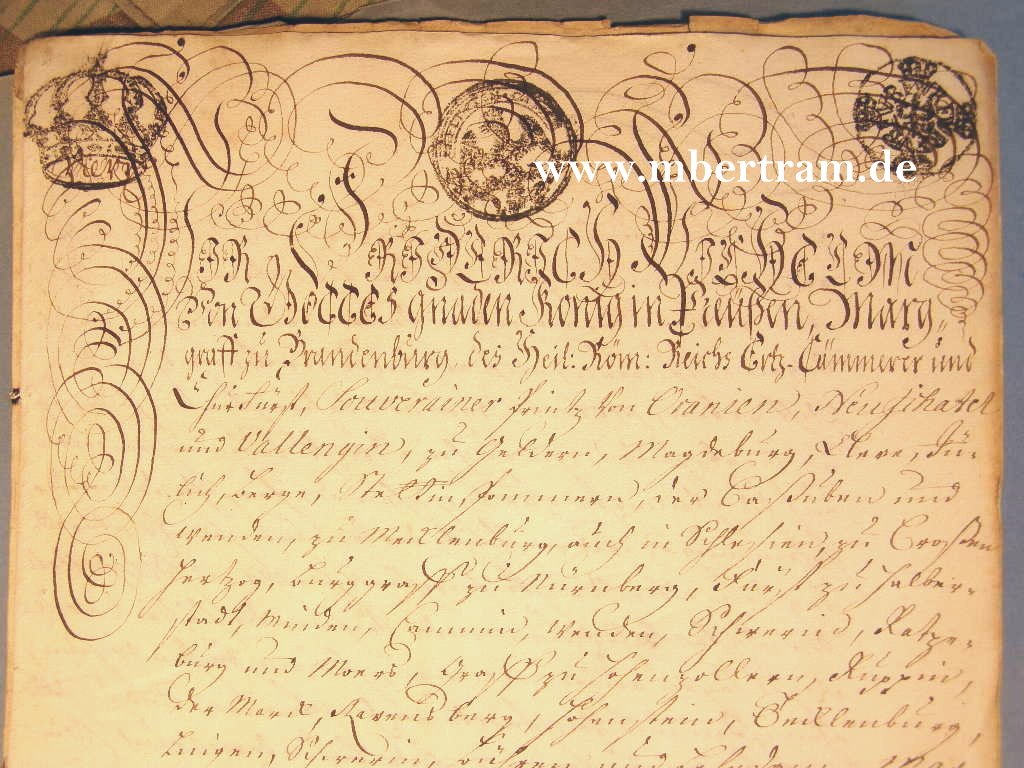 www.mbertram.de
WIR FRIDERICH WILHELM
Von GOTTES gnaden König in Preußen, Marg„
graff zu Brandenburg, des Heil: Röm: Reichs Ertz-Cämmerer und
Churfürst, Souverainer Printz von Oranien, Neufchatel
und Vallengin, zu Geldern, Magdeburg, Cleve, Jü-
lich, Berge, Stettin, Pommern, der Cassuben und
Wenden, zu Mecklenburg, auch in Schlesien, zu Crossen
Hertzog, Burggraff zu Nürnberg, Fürst zu Halber-
stadt, Minden, Cammin, Wenden, Schwerin, Ratze-
burg und Moers, Graff zu Hohenzollern, Ruppin,
der Marck, Ravensberg, Hohenstein, Tecklenburg,
Lingen, Schwerin, Bühren und Lehrdam, Mar